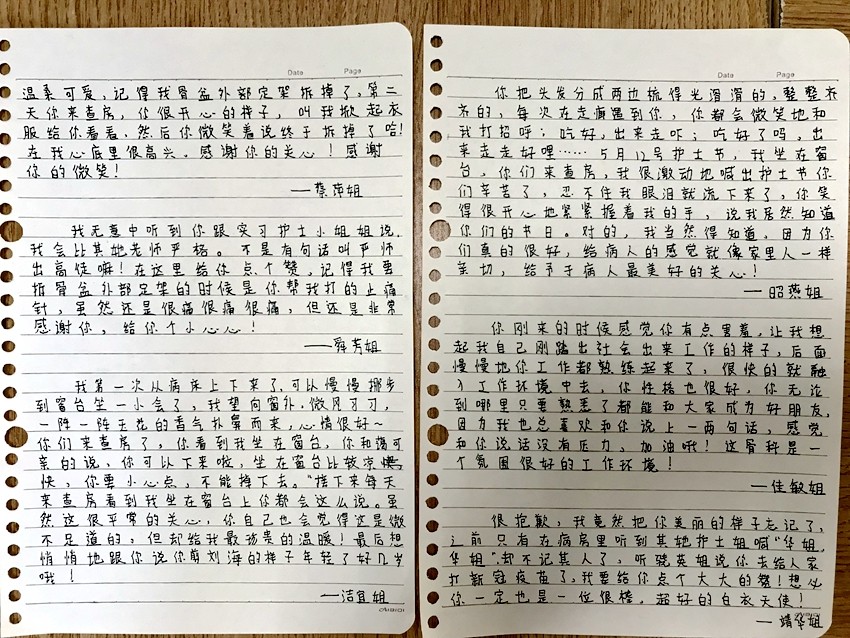 Date Page
温柔可爱，记得我骨盆外部定架拆掉了，第二
天你来查房，你很开心的样子，叫我掀起衣
服给你看看，然后你微笑着说终于拆掉了哈！
在我心底里很高兴，感谢你的关心！感谢
你的微笑！
——蔡萍姐
我无意中听到你跟实习护士小姐姐说，
我会比其她老师严格。不是有句话叫严师
出高徒嘛！在这里给你点个赞，记得我要
拆骨盆外部定架的时候是你帮我打的止痛
针，虽然还是很痛很痛很痛，但还是非常
感谢你，给你个小心心！
——舜芳姐
我第一次从病床上下来了，可以慢慢挪步
到窗台坐一小会了，我望向窗外，微风习习，
一阵一阵天花的香气扑鼻而来，心情很好~
你们来查房了，你看到我坐在窗台，你和蔼可
亲的说，你可以下来啦，坐在窗台比较凉
快，你要小心点，不能掉下去。"接下来每天
来查房看到我坐在窗台上你都会这么说。虽
然这很平常的关心，你自己也会觉得这是微
不足道的，但却给我最珍贵的温暖！最后想
悄悄地跟你说你剪刘海的样子年轻了好几岁
哦！
——洁宜姐
Date Page
你把头发分成两边梳得光滑滑的，整整齐
齐的，每次在走廊遇到你，你都会微笑地和
我打招呼；吃好，出来走吓；吃好了吗，出
来走走好哩……5月12号护士节，我坐在窗
台，你们来查房，我很激动地喊出护士节你
们辛苦了，忍不住我眼泪就流下来了，你笑
得很开心地紧紧握着我的手，说我居然知道
你们的节日。对的，我当然得知道，因为你
们真的很好，给病人的感觉就像家里人一样
亲切，给予于病人最美好的关心！
——昭燕姐
你刚来的时候感觉你有点害羞，让我想
起我自己刚踏出社会出来工作的样子，后面
慢慢地你工作都熟练起来了，很快的就融
入工作环境中去，你性格也很好，你无论
到哪里只要熟悉了都能和大家成为好朋友，
因为我也总喜欢和你说上一两句话，感觉
和你说话没有压力，加油哦！这骨科是一
个氛围很好的工作环境！
——佳敏姐
很抱歉，我竟然把你美丽的样子忘记了，
之前只有在病房里听到其她护士姐喊"华姐，
华姐"，却不记其人了，听骁英姐说你去给人家
打新冠疫苗了，我要给你点个大大的赞！想必
你一定也是一位很棒，超好的白衣天使！
——靖华姐